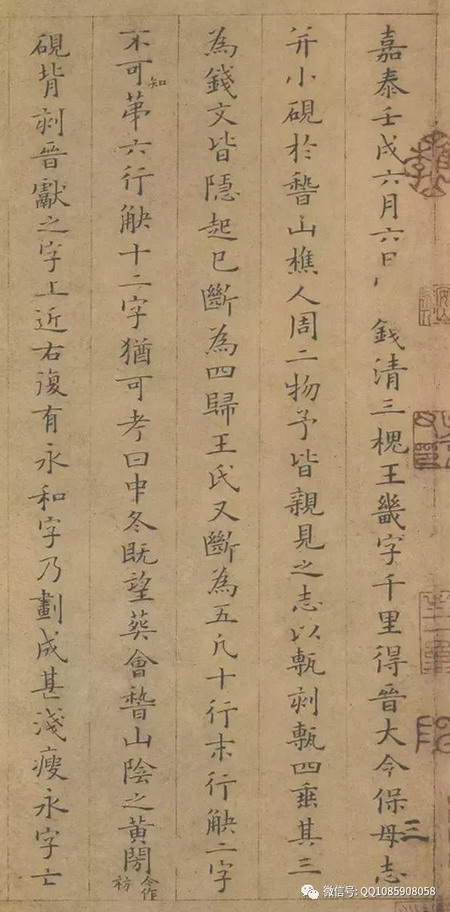 嘉泰壬戌六月六日，錢清三槐王畿字千里得晉大令保母志
三
并小硯於稽山樵人周二物予皆親見之志以甎刻甎四垂其三
為錢文皆隱起已斷為四歸王氏又斷為五凡十行末行缺二字
不可知弟六行缺十二字猶可考曰中冬既望葬會稽山陰之黃閍合作祊
硯背刻晉獻之字上近右復有永和字乃劃成甚淺瘦永字亡
微信号: QQ1085908058